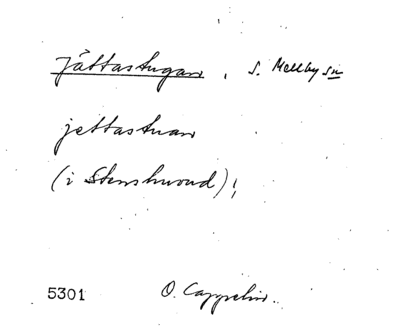 Jättastugan, S. Mellby sn
jettastuan
(i Stenshuvud);
5301 O. Cappelin.